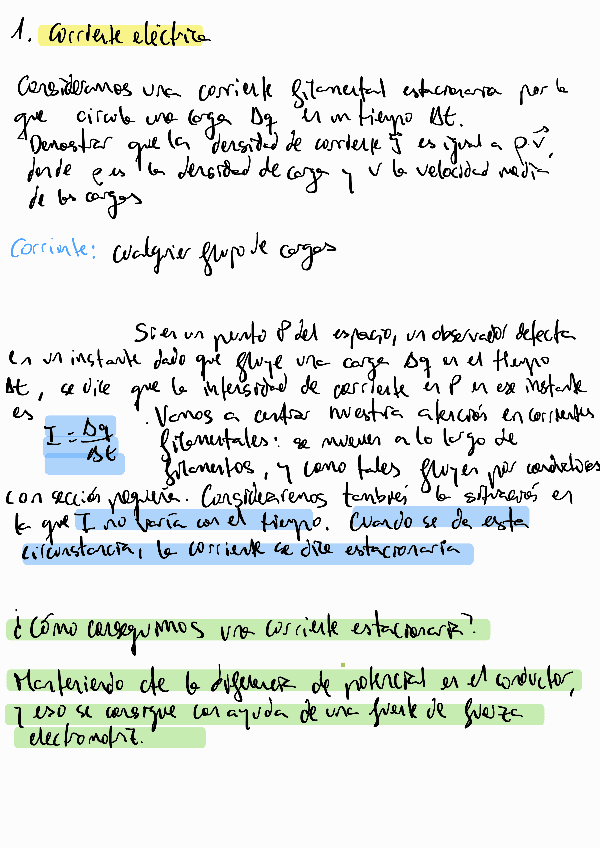 1. Corriente eléctrica
Consideramos una corriente filamental estacionaria por la
que circula una carga Δq en un tiempo Δt.
Demostrar que la densidad de corriente j⃗ es igual a ρ·v⃗,
donde ρ es la densidad de carga y v la velocidad media
de las cargas
Corriente: cualquier flujo de cargas
Si en un punto P del espacio, un observador detecta
en un instante dado que fluye una carga Δq en el tiempo
Δt, se dice que la intensidad de corriente en P en ese instante
es I = Δq/Δt . Vamos a centrar nuestra atención en corrientes
filamentales: se mueven a lo largo de
filamentos, y como tales fluyen por conductores
con sección pequeña. Consideraremos también la situación en
la que I no varía con el tiempo. Cuando se da esta
circunstancia, la corriente se dice estacionaria
¿Cómo conseguimos una corriente estacionaria?
Manteniendo cte la diferencia de potencial en el conductor,
y eso se consigue con ayuda de una fuente de fuerza
electromotriz.